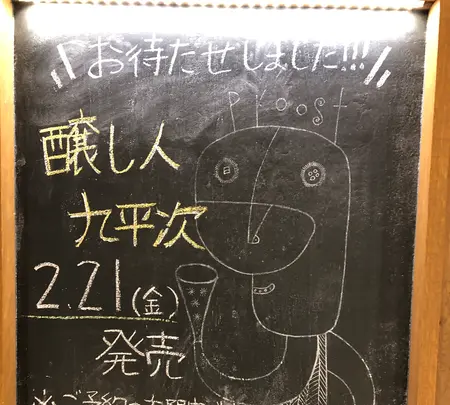 お待たせしました!!!
Ploost
醸し人
九平次
2.21(金)
発売
※ご予約